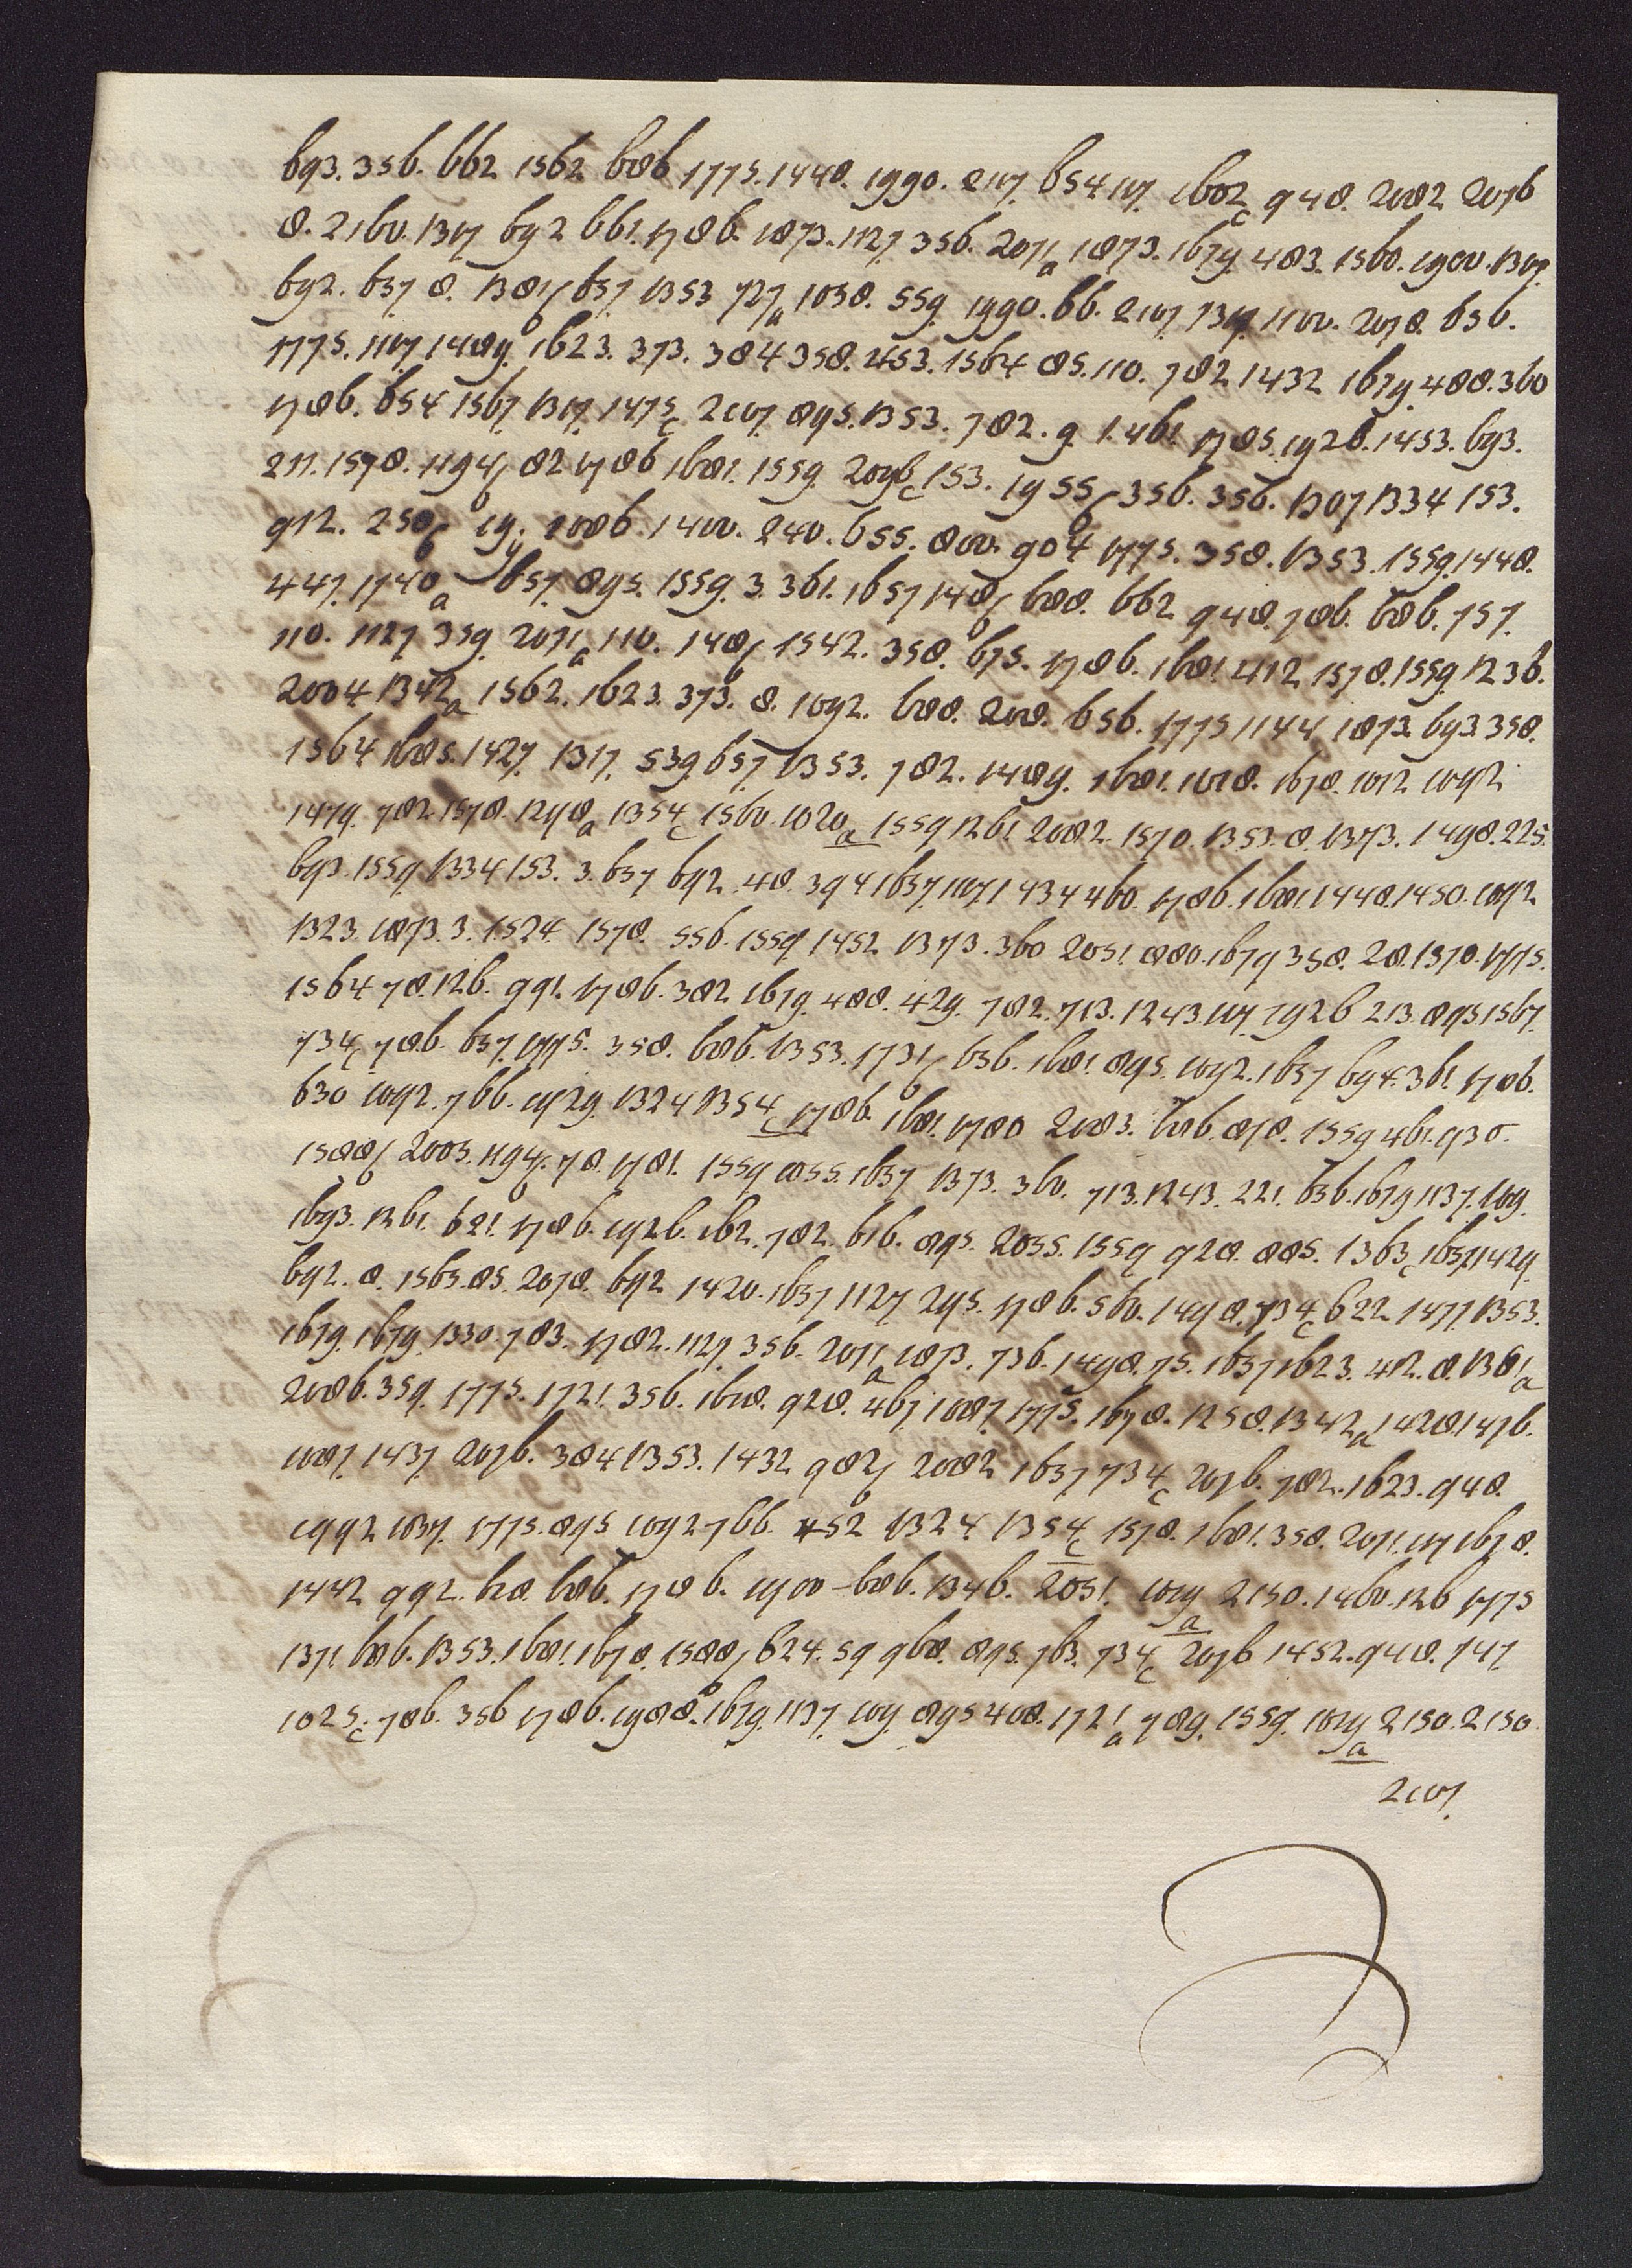 693. 356. 662 1562 686 1775. 1448. 1990. 2107. 654 107. 1602c 948. 2082 2076
8. 2160. 1317 692 661. 1786. 1873. 1127. 356. 2071a 1873. 1679 483. 1560. 1900. 1307.
692. 657 8. 1381b 657 1353 727a 1038. 559 1990. 66. 2107 1317. 1100. 2078. 656.
1775. 1107 1489. 1623. 373. 384 358. 453. 1564 85. 110. 782 1432 1679. 488. 360
1786. 654 1567 1317. 1475c 2107. 895. 1353. 782. 9. 1. 461. 1785. 1928. 1453. 693.
211. 1578. 1194b 82 1786 1681. 1559. 2096c 153. 1955b 356. 356. 1307 1334 153.
912. 250b 19. 2086. 1400. 240. 655. 800. 904 1775. 358. 1353. 1559. 1448.
447. 1740a 657. 895. 1559. 3. 361. 1657 148b 688. 662 948. 786. 686. 757.
110. 1127 359. 2071a 110. 148b 1542. 358. 675. 1786. 1681 412 1578. 1559. 1236.
2004 1342a 1562. 1623. 373. 8. 1092. 688. 208. 656. 1775 1144 1873. 693. 358.
1564 1685. 1427. 1317. 539 657 1353. 782. 1489. 1681. 1018. 1678. 1012 1092
1479. 782. 1578. 1298a 1354c 1560. 1020a 1559 1261 2082. 1570. 1353. 8. 1373. 1498. 225.
693. 1559 1334 153. 3. 657 692. 48. 394 1657. 1107 1434 460. 1786. 1681. 1448. 1450. 1092
1323. 1873. 3. 1524. 1578. 556. 1559 1452 1373. 360 2051. 880. 1679 358. 28. 1370. 1775.
1564 78. 126. 991. 1786. 382 1679. 488. 429. 782. 713. 1243. 107 1926 213. 895 1567.
734c 786. 657. 1775. 358. 686. 1353. 1731b 656. 1681. 895. 1092. 1657 694. 361. 1786.
630 1092. 766. 1929. 1324 1354c 1786. 1681. 1780 2083. 686. 878. 1559 461. 930.
1588b 2005. 1194b 78. 1781. 1559 1055. 1657 1373. 360. 713. 1243. 221. 656. 1679 1137. 109.
1693. 1261. 621. 1786. 1926. 162. 782. 616. 895. 2055. 1559 928. 885. 1363c 1657. 1429.
692. 8. 1565. 85. 2078. 692 1420. 1657 1127 295. 1786. 560. 1498. 734c 622. 1477. 1353.
1679. 1679. 1330. 783. 1782. 1127. 356. 2071a 1873. 736. 1498. 75. 1657 1623. 412. 8. 1381a
2086. 359. 1775. 1721. 356. 1628. 928. 467 1087. 1775. 1678. 1258. 1342a 1428. 1476.
1087. 1437. 2076. 384 1353. 1432 982b 2082 1657. 734c 2076. 782. 1623. 948.
1992 1837. 1775. 895 1092 766. 452 1324. 1354c 1578. 1681. 358. 2071. 107 1678.
1442 992. 628. 686. 1786. 1900 – 686. 1346. 2051. 1019a 2150. 1460. 126 1775
1371 686. 1353. 1681. 1678. 1588b 624. 59 968. 895. 763. 734c 2076 1452. 948. 747.
1025c. 786. 356 1786. 1988. 1679. 1137. 109. 895 408. 1721a 789. 1559. 1019a 2150. 2150.
2107.